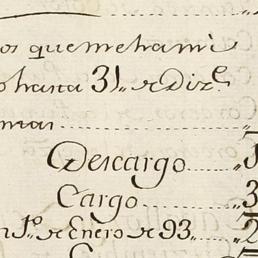 os que me han ve
o hasta 31,, de Diz.e
mas
Descargo
Cargo
n 1.o de Enero de 93